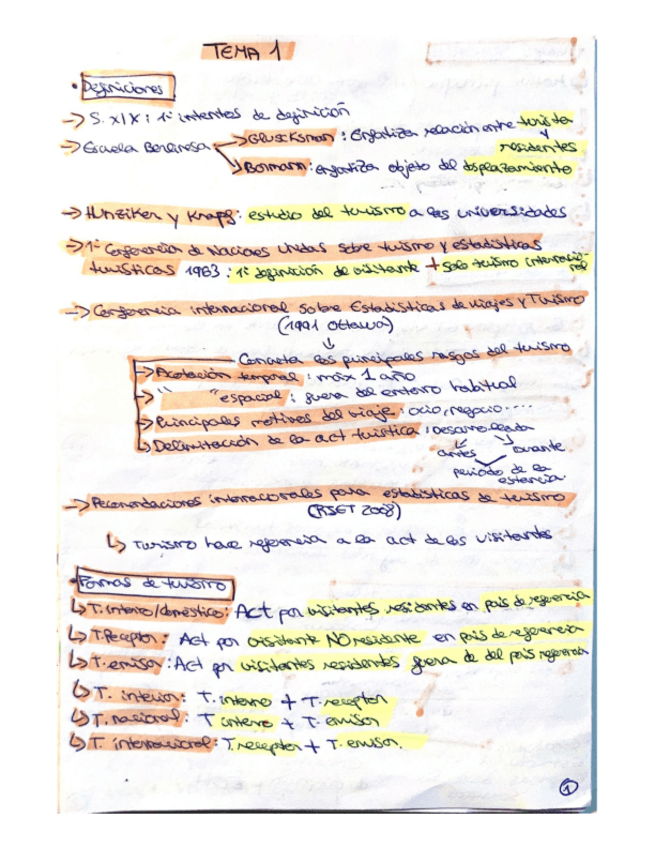 TEMA 1
• Definiciones
→ S. XIX: 1º intentos de definición
→ Escuela Berlinesa → Glucksman: Enfatiza relación entre turista y residentes
→ Bormann: enfatiza objeto del desplazamiento
→ Hunziker y Krapf: estudio del turismo a las universidades
→ 1º Conferencia de Naciones Unidas sobre turismo y estadísticas
turísticas 1963: 1º definición de visitante + solo turismo internacional
→ Conferencia internacional sobre Estadísticas de viajes y Turismo
(1991 Ottawa)
↓
Concreta los principales rasgos del turismo
→ Acotación temporal: máx 1 año
→ " " espacial: fuera del entorno habitual
→ Principales motivos del viaje: ocio, negocio....
↳ Delimitación de la act turística: Desarrollada
antes durante
periodo de la
estancia
→ Recomendaciones internacionales para estadísticas de turismo
(RIET 2008)
↳ Turismo hace referencia a la act de los visitantes
• Formas de turismo
↳ T. interno/doméstico: Act por visitantes residentes en país de referencia
↳ T. Receptor: Act por visitante NO residente en país de referencia
↳ T. emisor: Act por visitantes residentes fuera de del país referencia
↳ T. interior: T. interno + T. receptor
↳ T. nacional: T interno + T. emisor
↳ T. internacional: T. receptor + T. emisor.
1